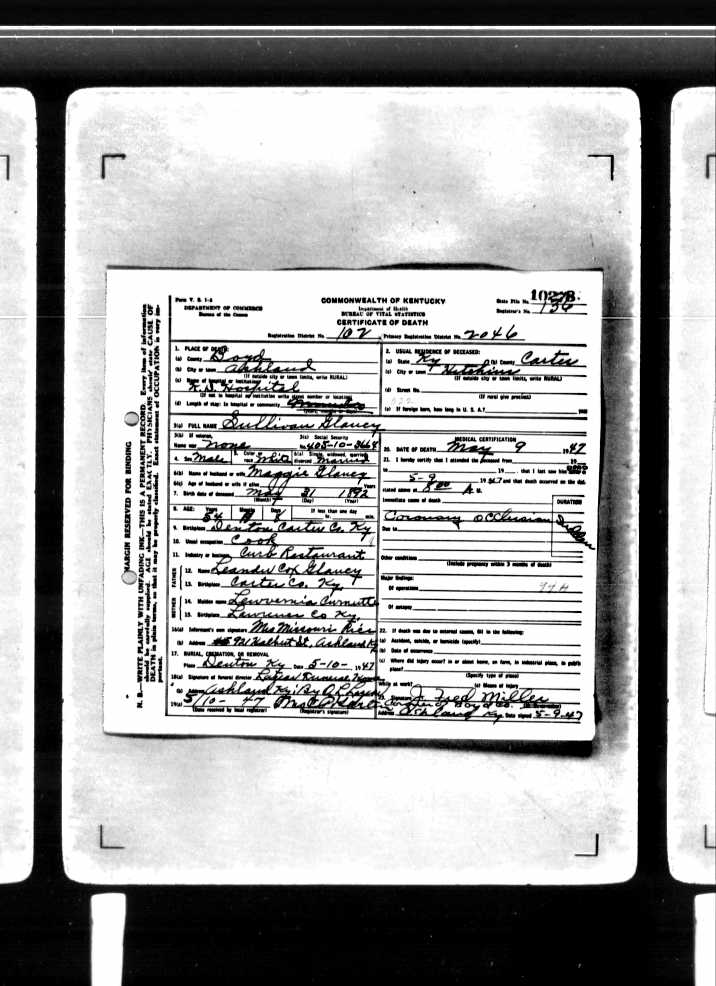 Form V. S. 1-A
DEPARTMENT OF COMMERCE
Bureau of the Census
COMMONWEALTH OF KENTUCKY
Department of Health
BUREAU OF VITAL STATISTICS
CERTIFICATE OF DEATH
State File No.
Registrar's No. 136
Registration District No. 102 Primary Registration District No. 2046
MARGIN RESERVED FOR BINDING
N. B.—WRITE PLAINLY WITH UNFADING INK—THIS IS A PERMANENT RECORD. Every item of information
should be carefully supplied. AGE should be stated EXACTLY. PHYSICIANS should state CAUSE OF
DEATH in plain terms, so that it may be properly classified. Exact statement of OCCUPATION is very im-
portant.
1. PLACE OF DEATH:
(a) County Boyd
(b) City or town Ashland
(If outside city or town limits, write RURAL)
(c) Name of hospital or institution:
K. D. Hospital
(If not in hospital or institution write street number or location)
(d) Length of stay: In hospital or community
3(a) FULL NAME Sullivan Glancy
3(b) If veteran, Name war none
3(c) Social Security No. 405-10-3664
4. Sex Male 5. Color or race White 6(a) Single, widowed, married, divorced Married
6(b) Name of husband or wife Maggie Glancy
6(c) Age of husband or wife if alive Years
7. Birth date of deceased May 31 1892
(Month) (Day) (Year)
8. AGE: Years 54 Months 11 Days 8 If less than one day hr. min.
9. Birthplace Denton Carter Co. Ky
10. Usual occupation Cook
11. Industry or business Curb Restaurant
FATHER
12. Name Leander Cox Glancy
13. Birthplace Carter Co. Ky
MOTHER
14. Maiden name
15. Birthplace Lawrence Co Ky.
16(a) Informant's own signature Mrs Missouri Rice
(b) Address 921 Walnut St, Ashland Ky
17. BURIAL, CREMATION, OR REMOVAL
Place Denton Ky Date 5-10- 1947
18(a) Signature of funeral director
(b) Address Ashland Ky.
19(a) 5/10-47
(Date received by local registrar) (Registrar's signature)
2. USUAL RESIDENCE OF DECEASED:
(a) State Ky (b) County Carter
(c) City or town Hitchins
(If outside city or town limits, write RURAL)
(d) Street No.
(If rural give precinct)
(e) If foreign born, how long in U. S. A.? years
MEDICAL CERTIFICATION
20. DATE OF DEATH May 9 1947
21. I hereby certify that I attended the deceased from 19
to 19 that I last saw him
5-9 1947 and that death occurred on the date
stated above at 8:00 A M.
Immediate cause of death DURATION
Coronary occlusion Sudden
Due to
Other conditions
(Include pregnancy within 3 months of death)
Major findings:
Of operations
Of autopsy
22. If death was due to external causes, fill in the following:
(a) Accident, suicide, or homicide (specify)
(b) Date of occurrence
(c) Where did injury occur? in or about home, on farm, in industrial place, in public
place?
(Specify type of place)
While at work? (e) Means of injury
23. Signature J. Fred Miller
Coroner Boyd Co.
Address Ashland Ky Date signed 5-9-47